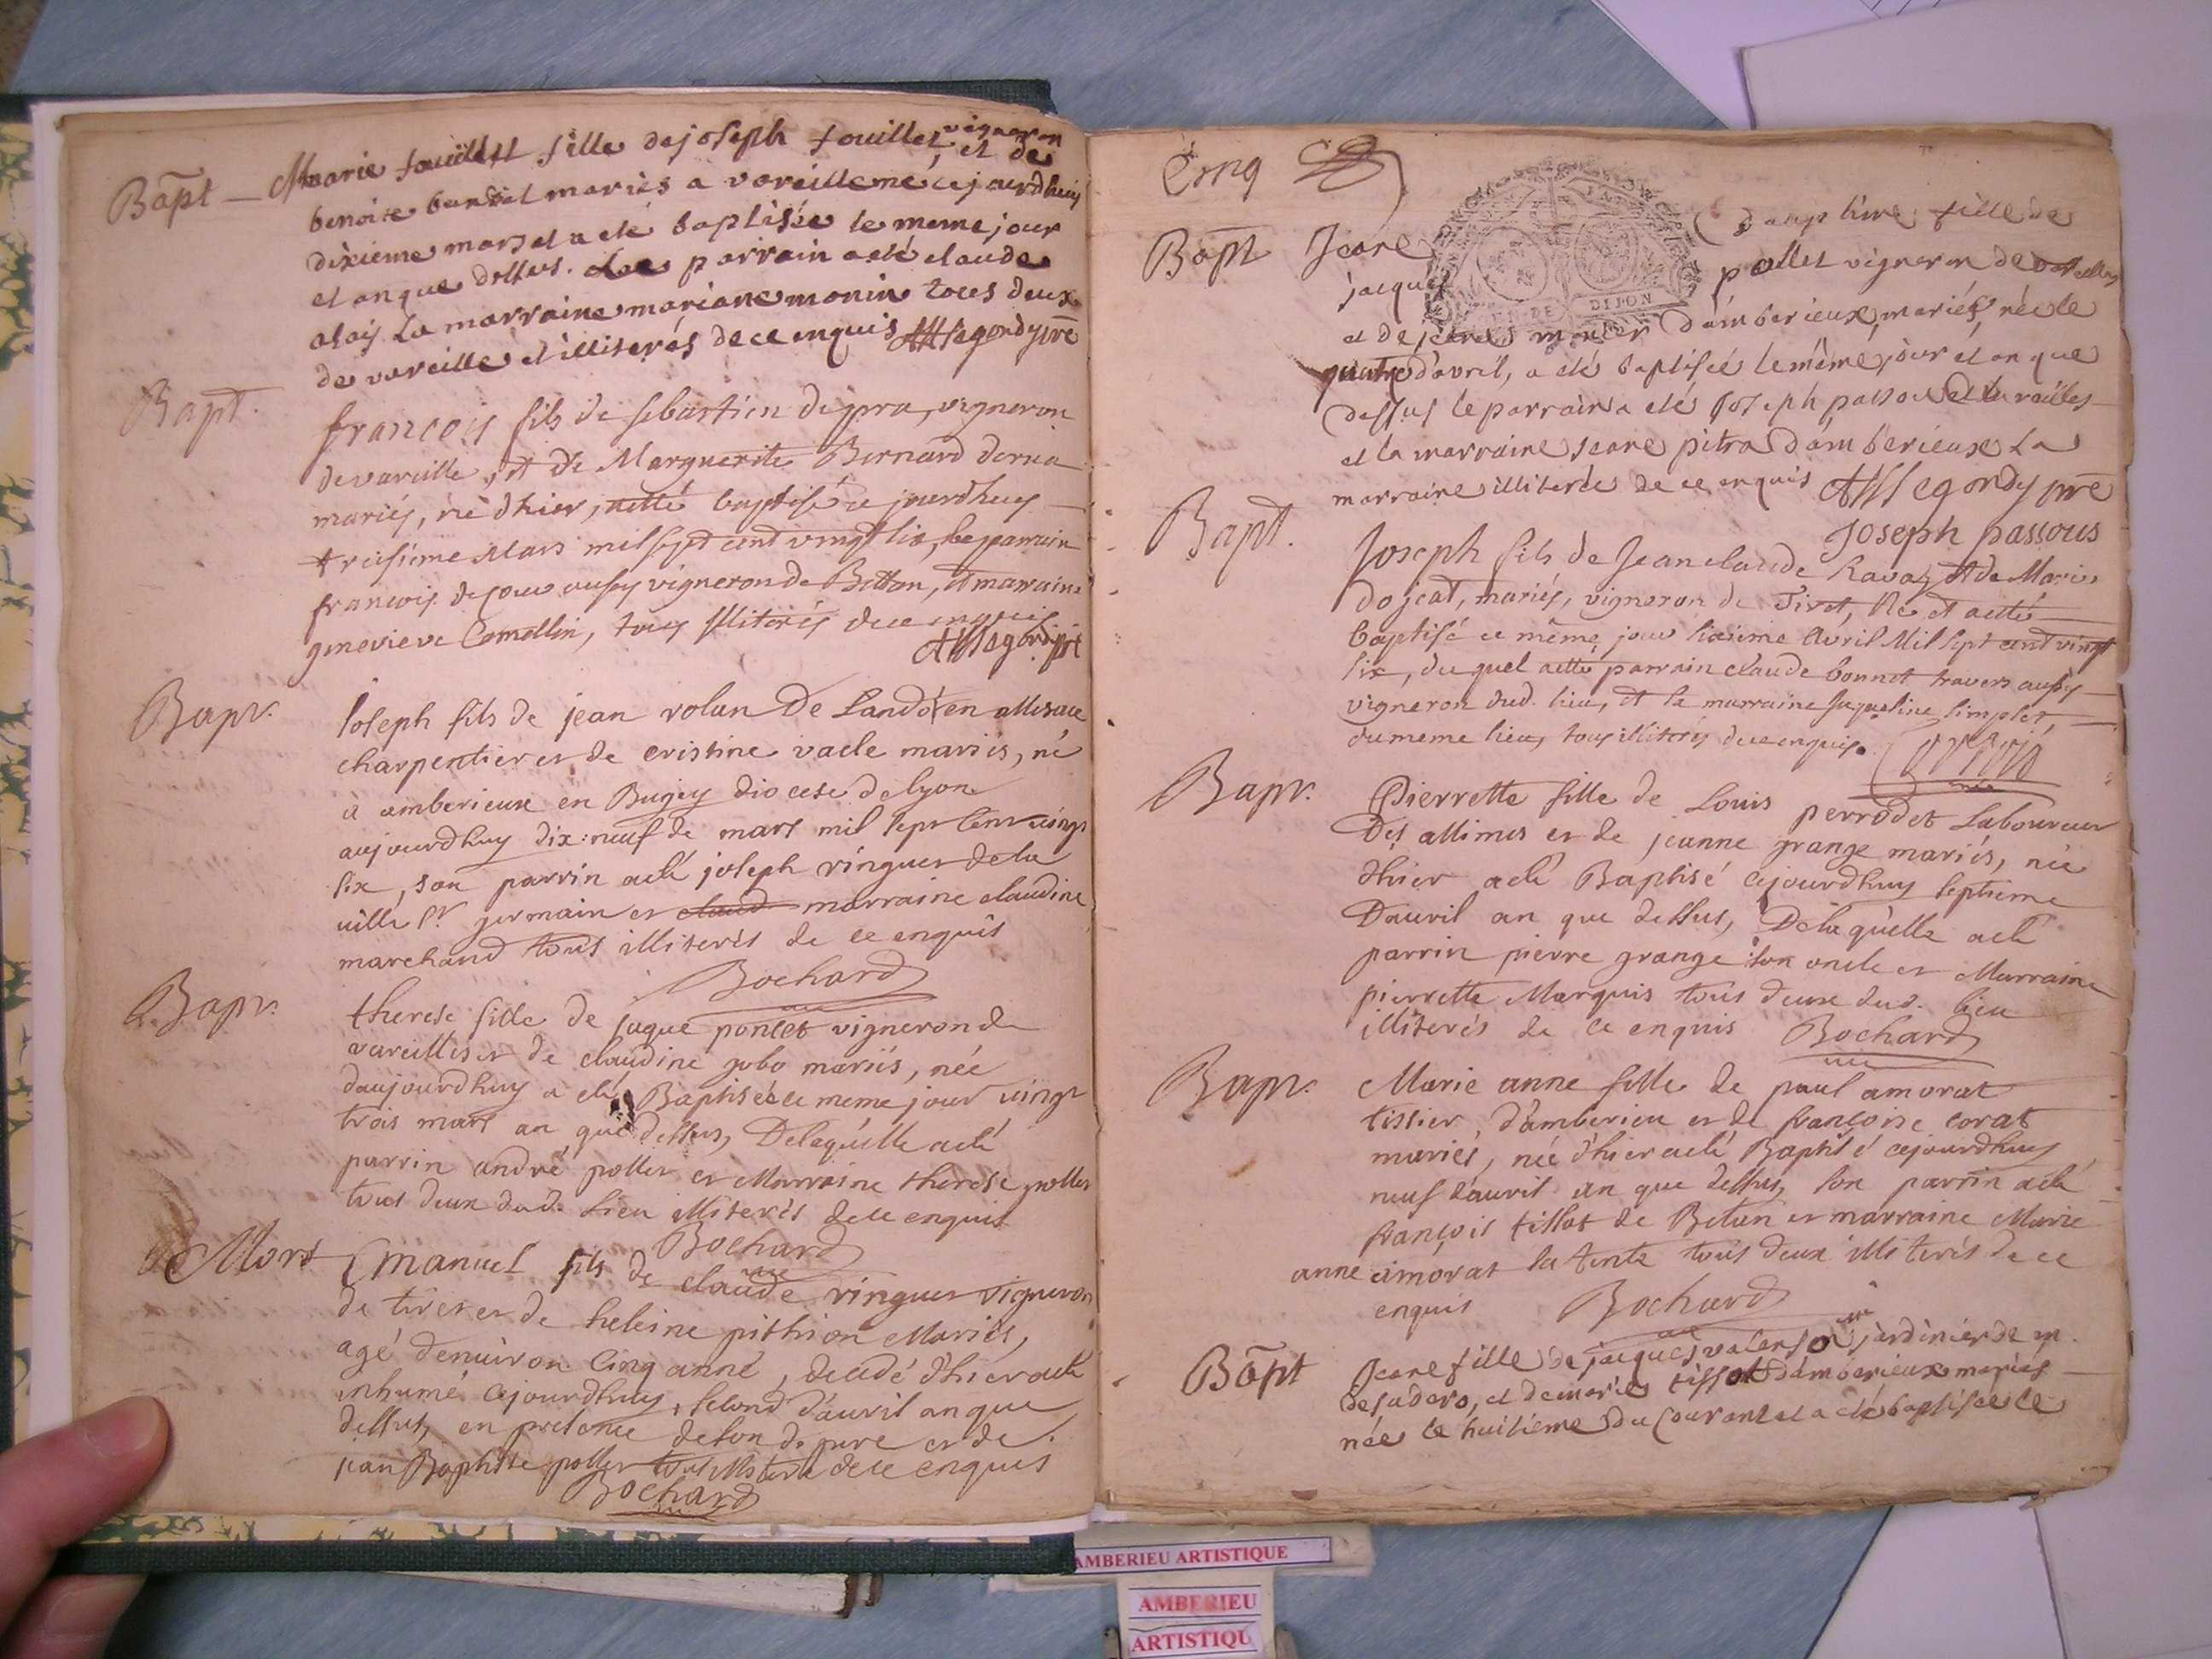 Bapt — Marie fouillet fille de joseph fouillet, vigneron et de
benoite mariés a vareille née cejourdhuy
dixieme mars et a eté baptisée le meme jour
et an que dessus. le parrain a eté claude
alais la marraine mariane monin tous deux
de vareille et illiterés de ce enquis AHSegondy pre
Bapt. françois fils de sebastien depra, vigneron
de vareille, et de Marguerite Bernard
mariés, né dhier, aetté baptisé ce jourdhuy
treisieme Mars mil sept cent vingt six, le parrain
francois aussy vigneron de Betton, et marraine
genevieve Comellin, tous illiterés de ce enquis
AHSegondy pre
Bapt. Joseph fils de jean rolan de Landö en allesace
charpentier et de cristine vacle mariés, né
à amberieux en Bugey diocese de lyon
aujourdhuy dix-neuf de mars mil sept cent vingt
six, son parrin a eté joseph ringuet de la
ville st germain et claud marraine claudine
marchand tous illiterés de ce enquis
Bochard
Bapt. therese fille de jaque poncet vigneron de
vareilles et de claudine gobo mariés, née
daujourdhuy a eté Baptisée le meme jour vingt
trois mars an que dessus, Delaquelle a eté
parrin andré pollet et Marraine therese pollet
tous deux dud. Lieu illiterés de ce enquis
Bochard
Mort Emanuel fils de claude ringuet vigneron
de tiret et de heleine pithion Mariés,
agé denuiron Cinq anné, decedé dhier a eté
inhumé cejourdhuy second d'auril an que
dessus, en presence de son d. pere et de
jean Baptiste pollet tous illiterés de ce enquis
Bochard
Cinq
DE DIJON
Bapt Jeane daup hine fille de
jacque pollet vigneron de vareilles
et de jeane monier dámberieux, mariés, née le
quatre d'avril, a eté baptisée le même jour et an que
dessus le parrain a eté Joseph passou de vareilles
et la marraine jeane pitra dámberieux la
marraine illiterée de ce enquis AHSegondy pre
Joseph passous
Bapt. Joseph fils de Jean claude Ravaz et de Marie
dojeat, mariés, vigneron de Tiret, Né et aetté
baptisé ce même jour sixieme Avril Mil sept cent vingt
six, du quel aetté parrain claude bonnet travers aussy
vigneron dud. lieu, et la marraine jaqueline simplet,
du meme lieu, tous illiterés de ce enquis.
Bapt. Pierrette fille de Louis perrodet Laboureur
Des allimes et de jeanne grange mariés, née
dhier a eté Baptisé cejourdhuy septieme
D'auril an que dessus, Delaquelle a eté
parrin pierre grange son oncle et Marraine
pierrette Marquis tous deux dud. lieu
illiterés de ce enquis Bochard
Bapt. Marie anne fille de paul amorat
tissier, d'amberieu et de françoise corat
mariés, née d'hier a eté Baptisé cejourdhuy
neuf d'auril an que dessus, son parrin a eté
françois tillot de Betan et marraine Marie
anne amorat sa tente tous deux illiterés de ce
enquis Bochard
Bapt Jeane fille de jacques valenson jardinier de m.
desadero, et de marie tissot d'amberieux mariés
née le huitieme du Courant et a eté baptisée le
AMBERIEU ARTISTIQUE
AMBERIEU
ARTISTIQU